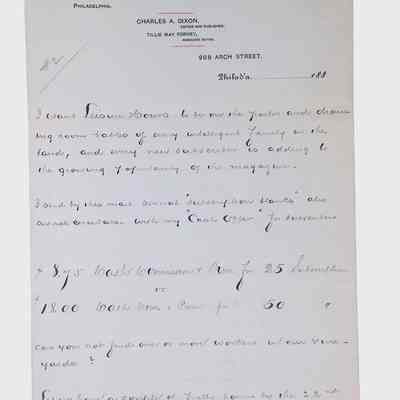 PHILADELPHIA.
CHARLES A. DIXON,
EDITOR AND PUBLISHER.
TILLIE MAY FORNEY,
ASSOCIATE EDITOR.
988 ARCH STREET.
Philad'a 188
I want Leisure Hours to be on the Parlor and draw
ing room tables of every intelligent family in the
land, and every new subscriber is adding to
the growing popularity of the magazine.
I send by this mail several "subscription blanks" also
several circulars with my "Cash Offer" for subscribers
$8.75 Cash Commission & Prem for 25 Subscribers
or
$18.00 Cash Com & Prem for 50 "
Can you not find one or more workers in our vine-
yards?